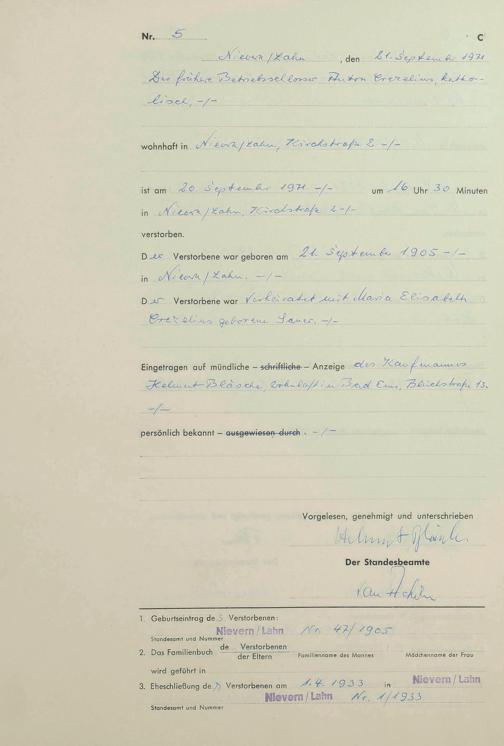 Nr. 5 C
Nievern/Lahn, den 21. September 1971
Der frühere Betriebsschlosser Anton Crezelius, katho-
lisch, -/-
wohnhaft in Nievern/Lahn, Kirchstraße 2 -/-
ist am 20. September 1971 -/- um 16 Uhr 30 Minuten
in Nievern/Lahn, Kirchstraße 2 -/-
verstorben.
Der Verstorbene war geboren am 21. September 1905 -/-
in Nievern/Lahn. -/-
Der Verstorbene war verheiratet mit Maria Elisabeth
Crezelius geborene Sauer. -/-
Eingetragen auf mündliche – schriftliche – Anzeige des Kaufmannes
Helmut Bläsche, wohnhaft in Bad Ems, Bleichstraße 13.
-/-
persönlich bekannt – ausgewiesen durch . -/-
Vorgelesen, genehmigt und unterschrieben
Helmut
Der Standesbeamte
1. Geburtseintrag des Verstorbenen:
Nievern/Lahn Nr. 47/1905
Standesamt und Nummer
2. Das Familienbuch de Verstorbenen
der Eltern Familienname des Mannes Mädchenname der Frau
wird geführt in
3. Eheschließung des Verstorbenen am 1.4.1933 in Nievern/Lahn
Nievern/Lahn Nr. 1/1933
Standesamt und Nummer